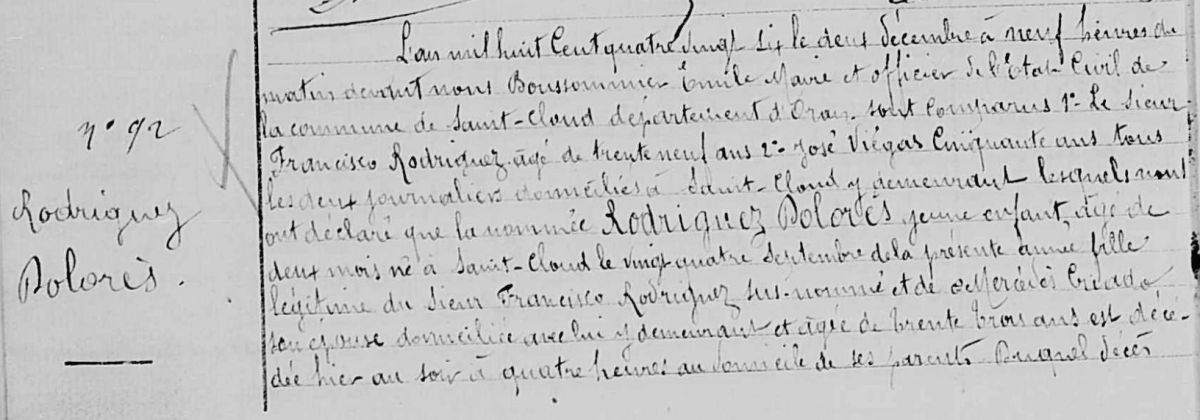 n° 92
Rodriguez
Dolorès.
L'an mil huit Cent quatre vingt six le deux décembre à neuf heures du
matin devant nous Boussommier Emile Maire et officier de l'Etat Civil de
la commune de Saint-Cloud département d'Oran. sont Comparus 1° Le Sieur
Francisco Rodriguez. âgé de trente neuf ans 2° José Viégas Cinquante ans tous
les deux journaliers domiciliés à Saint-Cloud y demeurant lesquels nous
ont déclaré que la nommée Rodriguez Dolorès jeune enfant, âgé de
deux mois né à Saint-Cloud le vingt quatre Septembre de la présente année fille
légitime du Sieur Francisco Rodriguez sus-nommé et de Mercédès Criado
son épouse domiciliée avec lui y demeurant et âgée de trente trois ans est décé-
dée hier au soir à quatre heures au domicile de ses parents Duquel décès